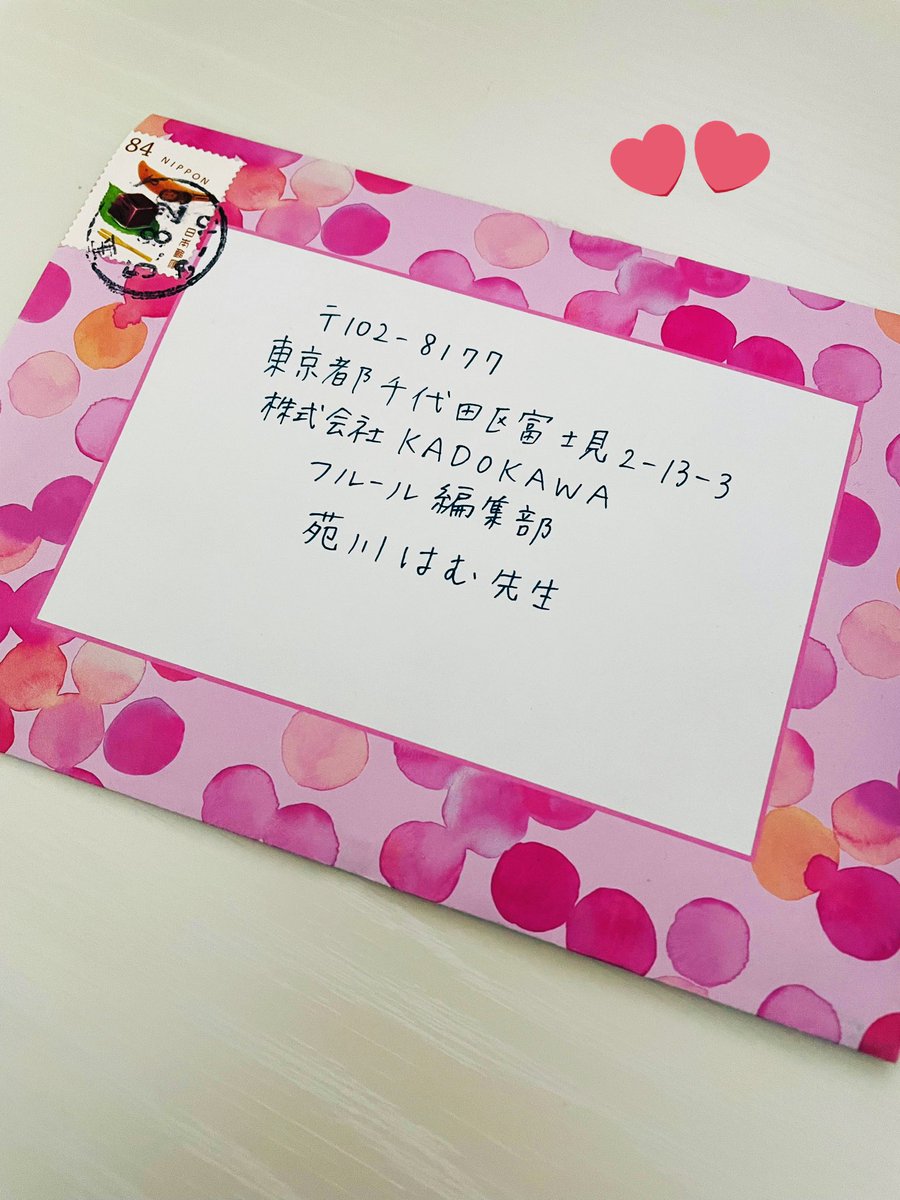 84 NIPPON
日本郵便
〒102-8177
東京都千代田区富士見2-13-3
株式会社KADOKAWA
フルール編集部
苑川はむ先生